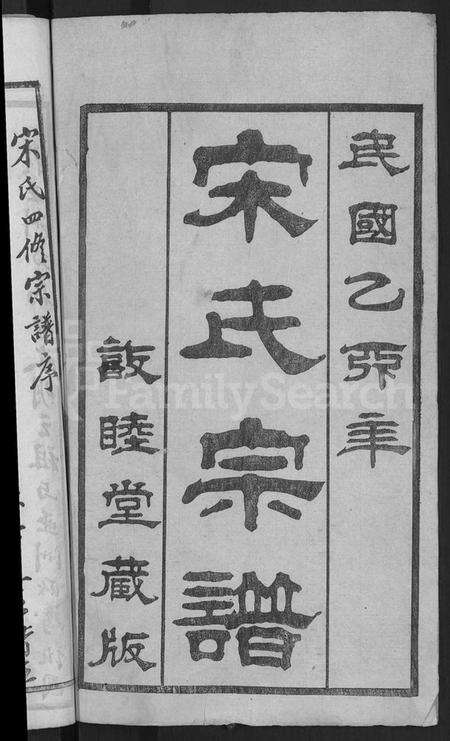 民國乙亥年
宋氏宗譜
敦睦堂藏版
宋氏四修宗譜序
FamilySearch